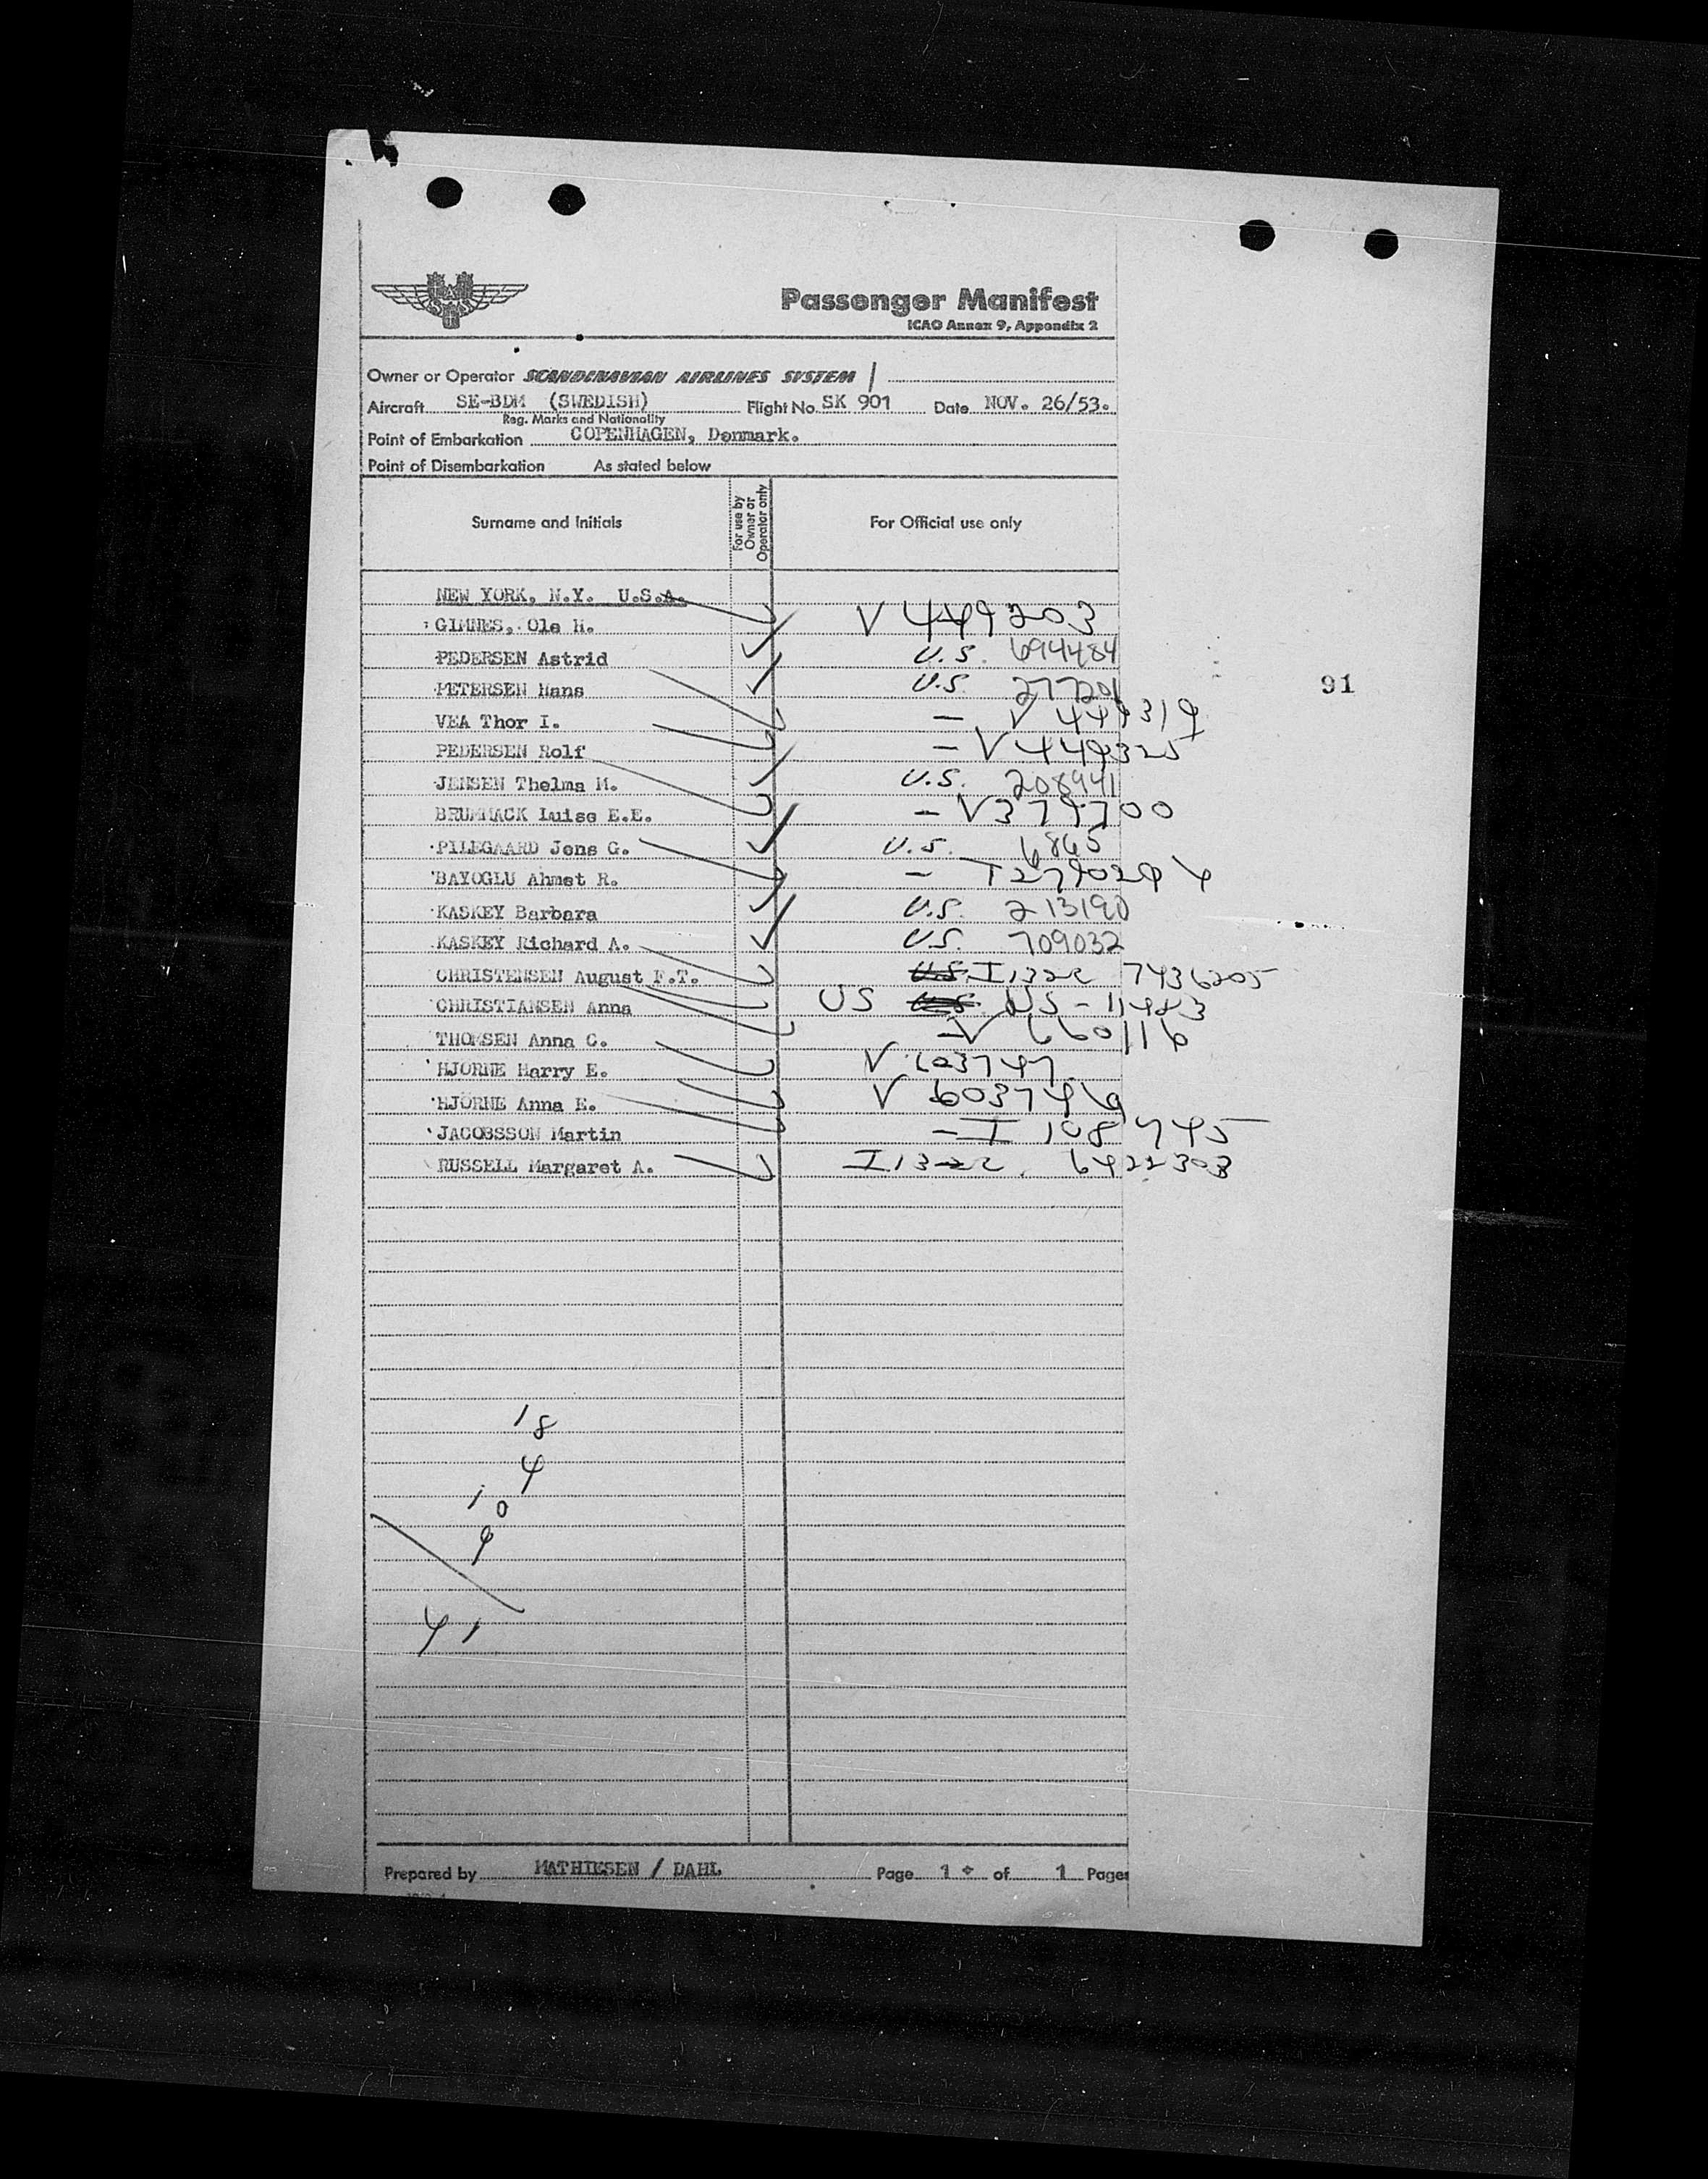 Passenger Manifest
ICAO Annex 9, Appendix 2
Owner or Operator SCANDINAVIAN AIRLINES SYSTEM
Aircraft SE-BDM (SWEDISH) Flight No. SK 901 Date NOV. 26/53.
Reg. Marks and Nationality
Point of Embarkation COPENHAGEN, Denmark.
Point of Disembarkation As stated below
Surname and Initials For use by Owner or Operator only For Official use only
NEW YORK, N.Y. U.S.A.
GIMNES, Ole H. V 449203
PEDERSEN Astrid U.S. 694484
PETERSEN Hans U.S. 277201
91
VEA Thor I. – V 449319
PEDERSEN Rolf – V 449325
JENSEN Thelma M. U.S. 208941
BRUMMACK Luise E.E. – V 379700
PILEGAARD Jens G. U.S. 6865
BAYOGLU Ahmet R. –
KASKEY Barbara U.S. 213190
KASKEY Richard A. U.S. 709032
CHRISTENSEN August F.T. U.S. I 132c 7436205
CHRISTIANSEN Anna US U.S. US - 11483
THOMSEN Anna C. – V 660116
HJORNE Harry E. V 603747
HJORNE Anna E. V 603746
JACOBSSON Martin – I 108745
RUSSELL Margaret A. I 132c. 6422303
18
4
10
9
41
Prepared by MATHIESEN / DAHL Page 1 of 1 Pages